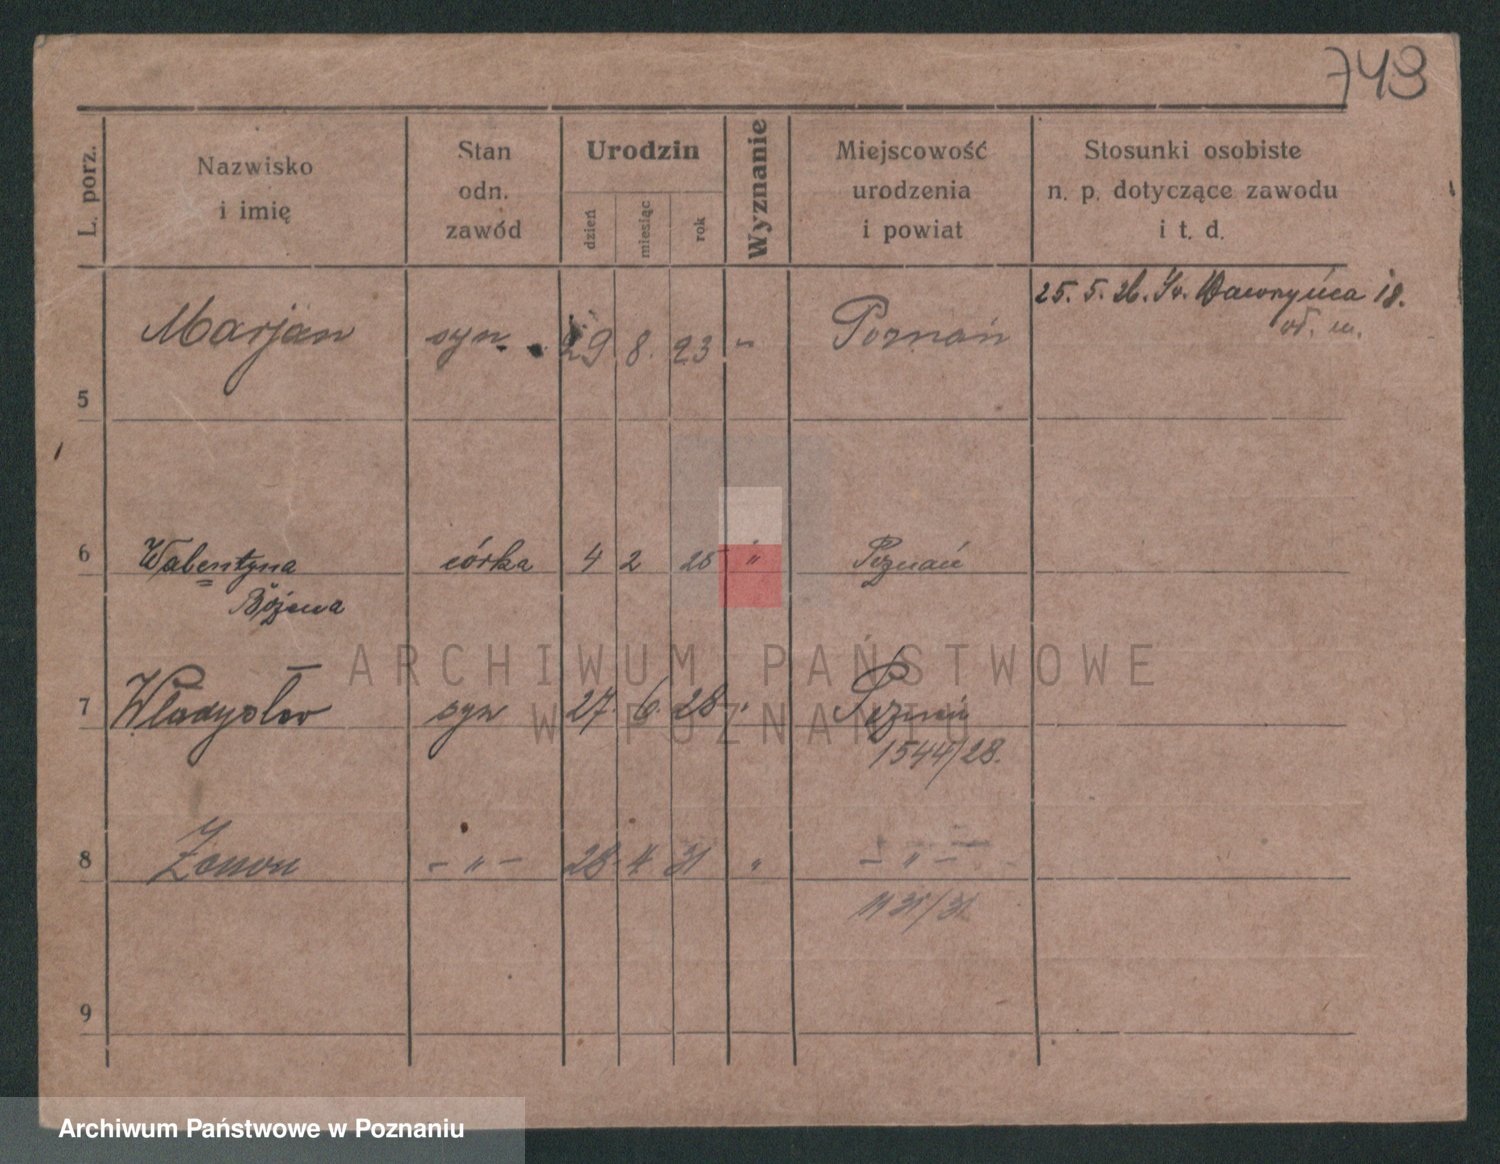 743
L. porz.
Nazwisko
i imię
Stan
odn.
zawód
Urodzin
dzień
miesiąc
rok
Wyznanie
Miejscowość
urodzenia
i powiat
Stosunki osobiste
n. p. dotyczące zawodu
i t. d.
5 Marjan syn 29 8. 23 " Poznań 25. 5. 26. Św. Wawrzyńca 18.
6 Walentyna córka 4 2 25 " Poznań
Bożena
7 Władysław syn 27. 6. 28 " Poznań
1544/28.
8 Zenon - " - 28. 4. 31 " - " -
9
ARCHIWUM PAŃSTWOWE
W POZNANIU
Archiwum Państwowe w Poznaniu